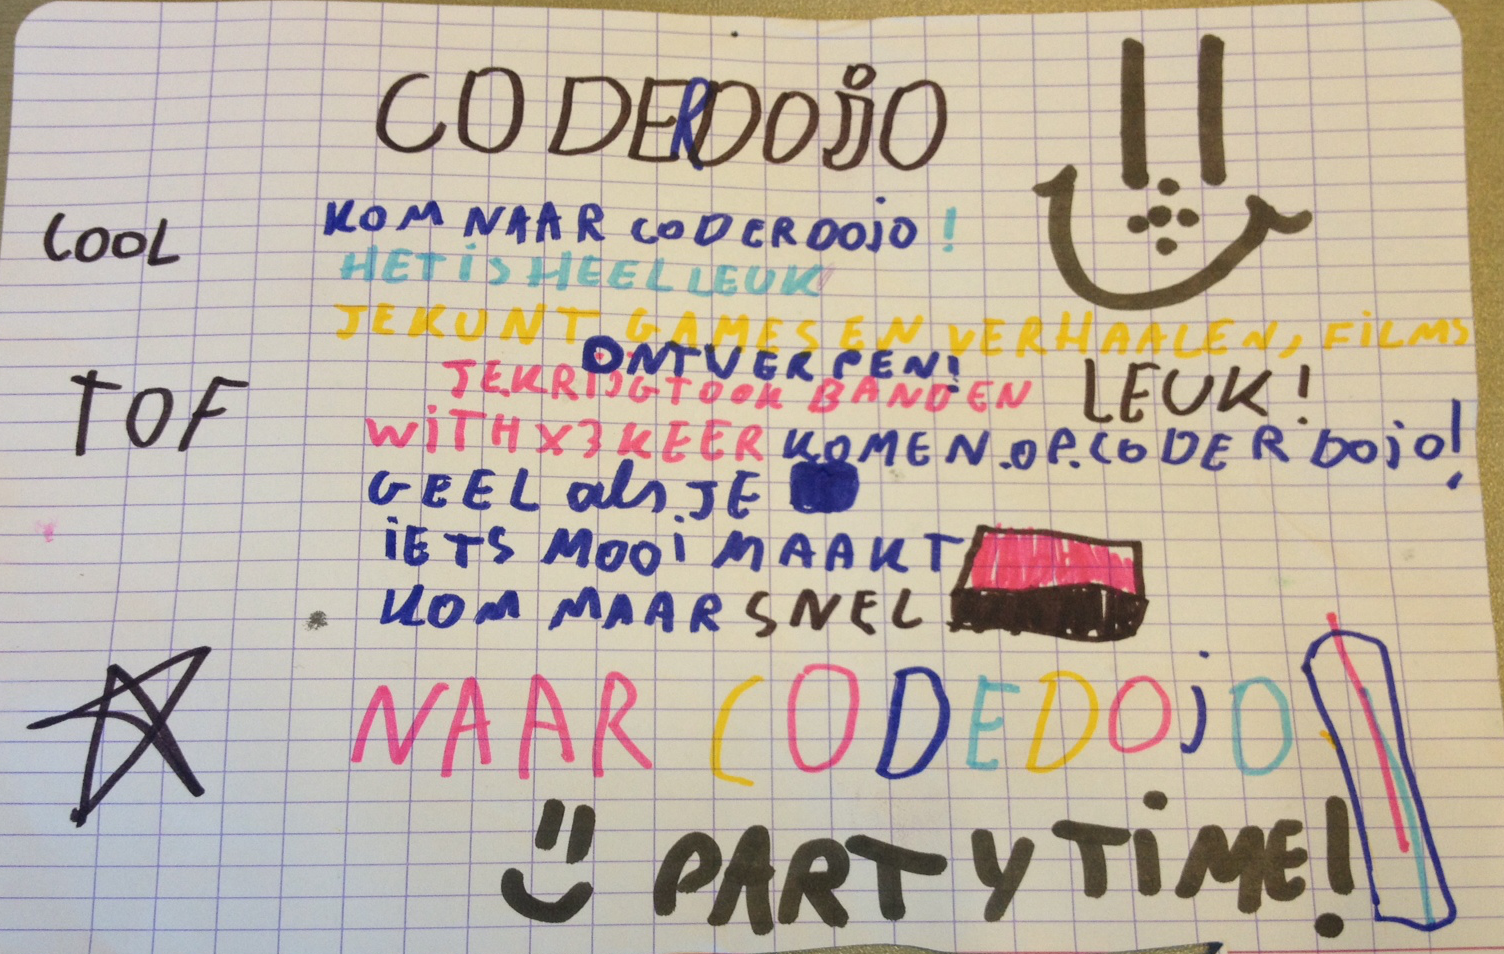 CODERDOJO
COOL
KOM NAAR CODERDOJO!
HET IS HEEL LEUK
JE KUNT GAMES EN VERHAALEN, FILMS
ONTVERPEN!
TOF
JE KRIJGT OOK BANDEN
LEUK!
WITH X3 KEER KOMEN.OP.CODERDOJO!
GEEL als JE
IETS MOOI MAAKT
KOM MAAR SNEL
NAAR CODEDOJO
PARTYTIME!